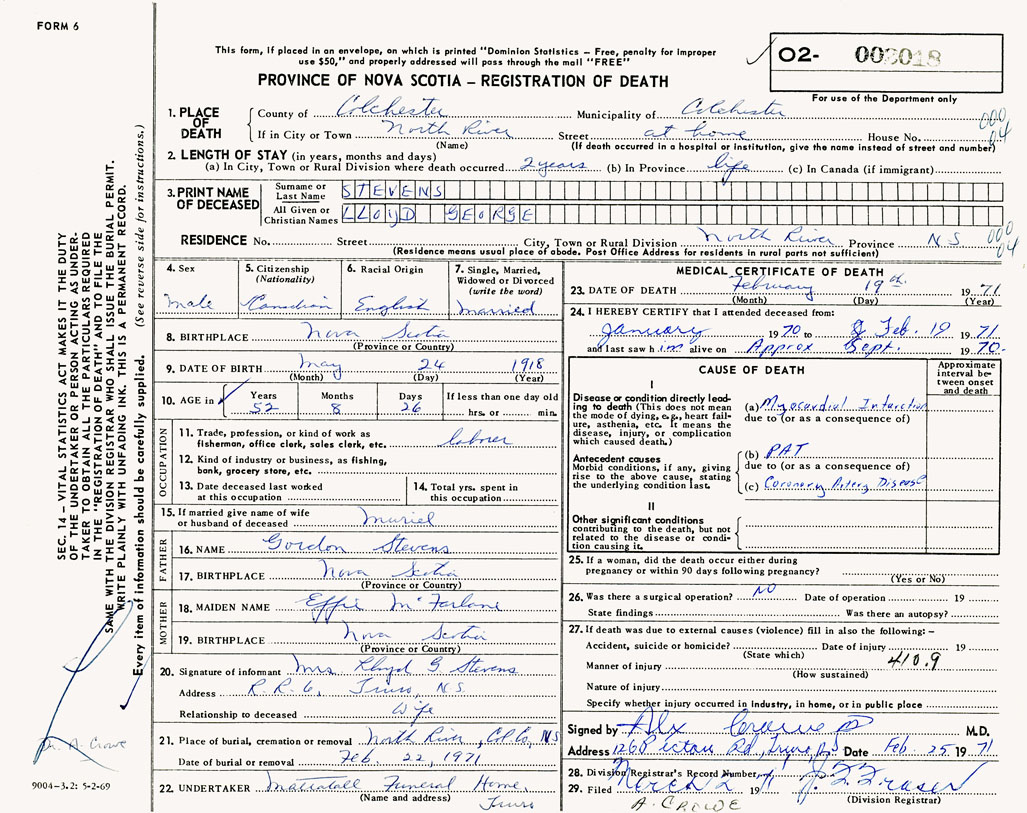 FORM 6
This form, if placed in an envelope, on which is printed "Dominion Statistics – Free, penalty for improper
use $50," and properly addressed will pass through the mail "FREE"
PROVINCE OF NOVA SCOTIA – REGISTRATION OF DEATH
02- 002018
For use of the Department only
1. PLACE OF DEATH
County of Colchester Municipality of Colchester
000
04
If in City or Town North River Street at home House No.
(Name) (If death occurred in a hospital or institution, give the name instead of street and number)
2. LENGTH OF STAY (in years, months and days)
(a) In City, Town or Rural Division where death occurred 2 years (b) In Province life (c) In Canada (if immigrant)
3. PRINT NAME OF DECEASED
Surname or Last Name STEVENS
All Given or Christian Names LLOYD GEORGE
RESIDENCE No. Street City, Town or Rural Division North River Province NS
000
04
(Residence means usual place of abode. Post Office Address for residents in rural parts not sufficient)
4. Sex
Male
5. Citizenship
(Nationality)
Canadian
6. Racial Origin
English
7. Single, Married,
Widowed or Divorced
(write the word)
Married
8. BIRTHPLACE Nova Scotia
(Province or Country)
9. DATE OF BIRTH May 24 1918
(Month) (Day) (Year)
10. AGE in Years Months Days If less than one day old
52 8 26 hrs. or min.
OCCUPATION
11. Trade, profession, or kind of work as
fishermen, office clerk, sales clerk, etc. labrer
12. Kind of industry or business, as fishing,
bank, grocery store, etc.
13. Date deceased last worked
at this occupation
14. Total yrs. spent in
this occupation
15. If married give name of wife
or husband of deceased Muriel
FATHER
16. NAME Gordon Stevens
17. BIRTHPLACE Nova Scotia
(Province or Country)
MOTHER
18. MAIDEN NAME Effie McFarlane
19. BIRTHPLACE Nova Scotia
(Province or Country)
20. Signature of informant Mrs Lloyd G Stevens
Address R.R.6, Truro, N.S.
Relationship to deceased Wife
21. Place of burial, cremation or removal North River, Col. Co, NS
Date of burial or removal Feb. 22, 1971
22. UNDERTAKER Mattatall Funeral Home,
(Name and address) Truro
MEDICAL CERTIFICATE OF DEATH
23. DATE OF DEATH February 19th. 1971
(Month) (Day) (Year)
24. I HEREBY CERTIFY that I attended deceased from:
January 1970 to Feb. 19 1971
and last saw him alive on Approx Sept. 1970.
CAUSE OF DEATH
Approximate
interval be-
tween onset
and death
I
Disease or condition directly lead-
ing to death (This does not mean
the mode of dying, e.g., heart fail-
ure, asthenia, etc. It means the
disease, injury, or complication
which caused death.)
(a) Myocardial Infarction
due to (or as a consequence of)
Antecedent causes
Morbid conditions, if any, giving
rise to the above cause, stating
the underlying condition last.
(b) PAT
due to (or as a consequence of)
(c) Coronary Artery Disease
II
Other significant conditions
contributing to the death, but not
related to the disease or condi-
tion causing it.
25. If a woman, did the death occur either during
pregnancy or within 90 days following pregnancy?
(Yes or No)
26. Was there a surgical operation? NO Date of operation 19
State findings Was there an autopsy?
27. If death was due to external causes (violence) fill in also the following: –
Accident, suicide or homicide? Date of injury 19
(State which)
410.9
Manner of injury
(How sustained)
Nature of injury
Specify whether injury occurred in industry, in home, or in public place
Signed by Alx Crowe M.D.
Address 126 Pictou Rd, Truro NS Date Feb. 25 1971
28. Division Registrar's Record Number
29. Filed March 2 1971
(Division Registrar)
A. CROWE
SEC. 14 – VITAL STATISTICS ACT MAKES IT THE DUTY
OF THE UNDERTAKER OR PERSON ACTING AS UNDER-
TAKER TO OBTAIN ALL THE PARTICULARS REQUIRED
IN THE "REGISTRATION OF DEATH" AND TO FILE THE
SAME WITH THE DIVISION REGISTRAR WHO SHALL ISSUE THE BURIAL PERMIT.
WRITE PLAINLY WITH UNFADING INK. THIS IS A PERMANENT RECORD.
Every item of information should be carefully supplied. (See reverse side for instructions.)
Dr. A. Crowe
9004-3.2: 5-2-69